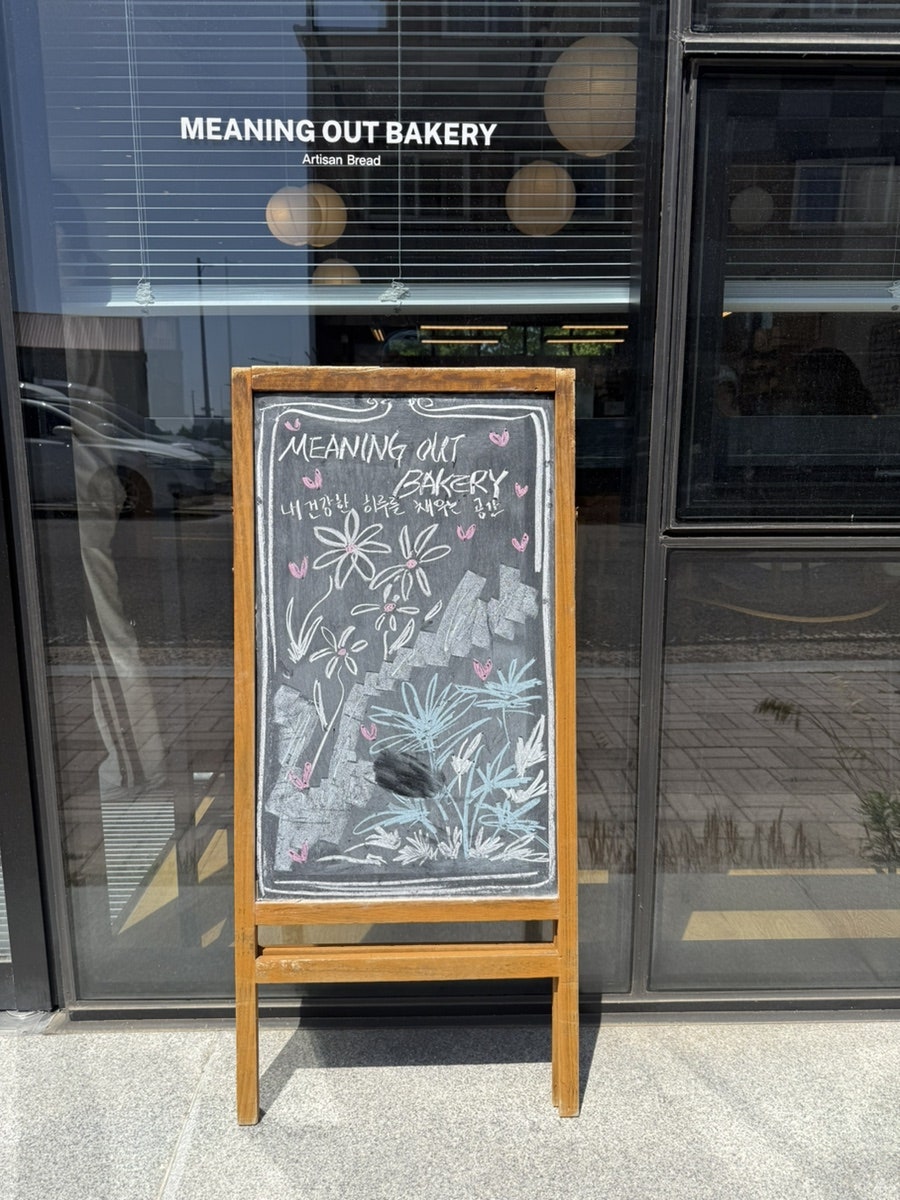 MEANING OUT BAKERY
Artisan Bread
MEANING OUT
BAKERY
내 건강한 하루를 채우는 공간